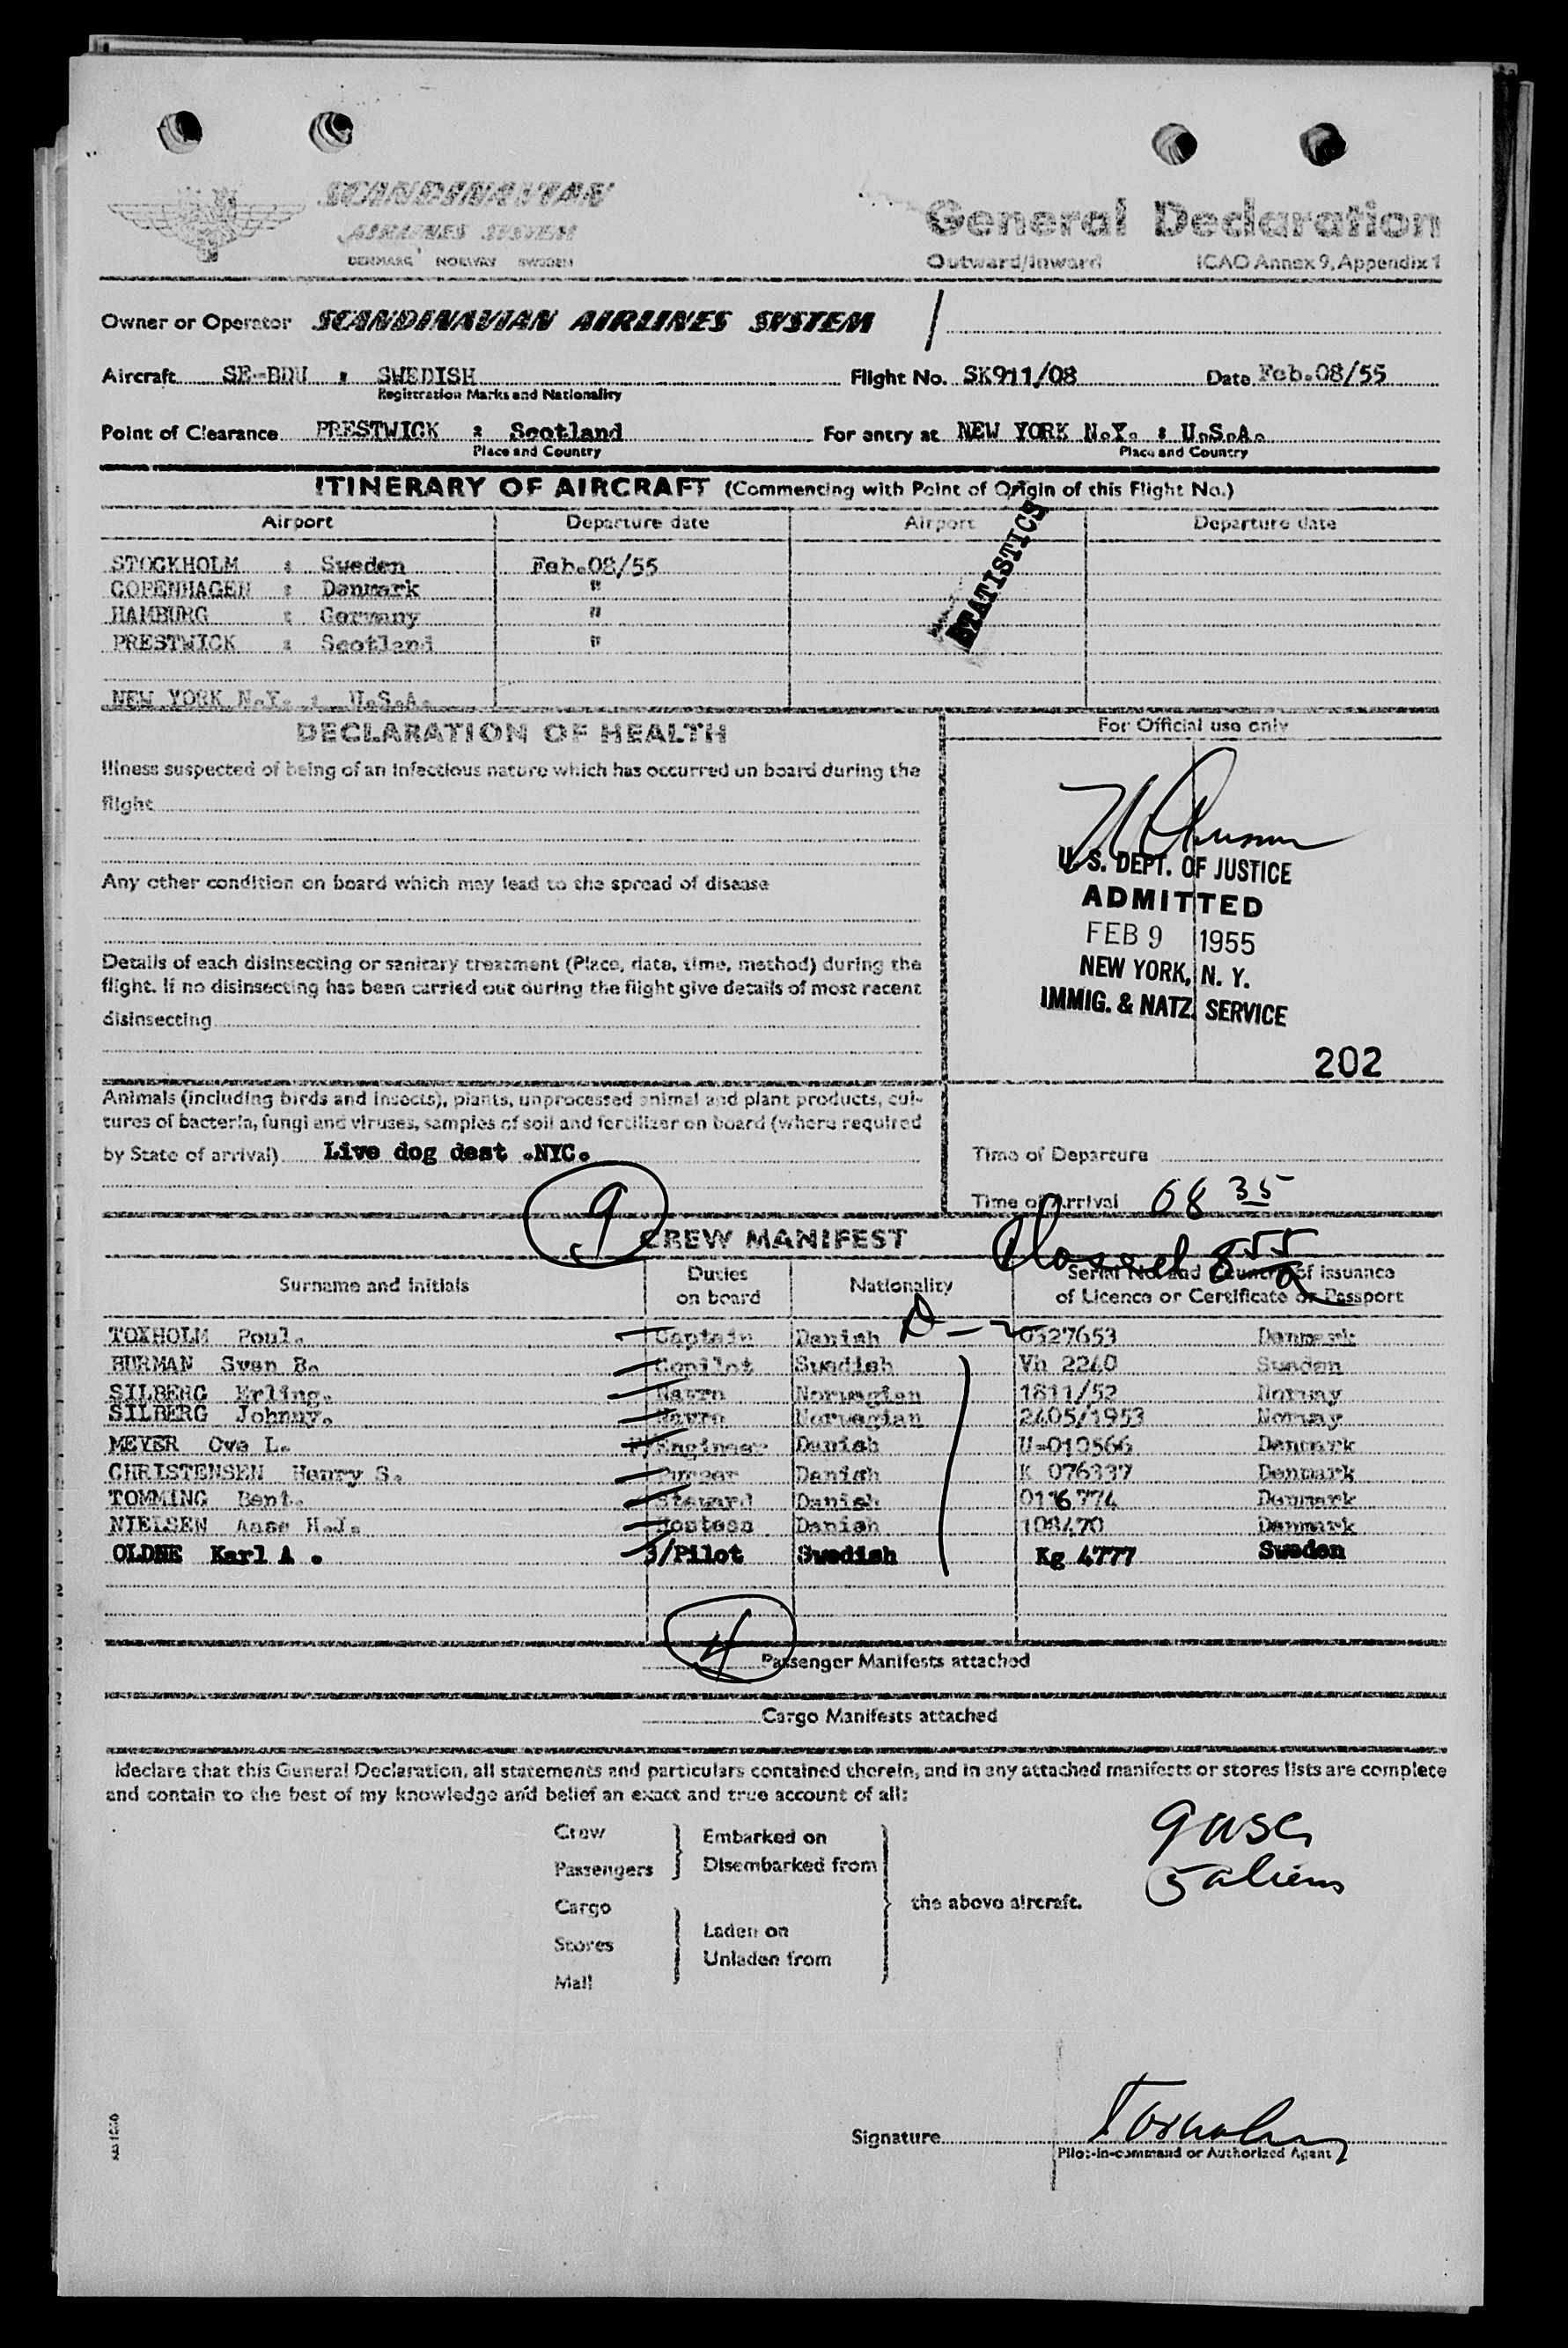 SCANDINAVIAN
AIRLINES SYSTEM
DENMARK NORWAY SWEDEN
General Declaration
Outward/Inward ICAO Annex 9, Appendix 1
Owner or Operator SCANDINAVIAN AIRLINES SYSTEM
Aircraft SE-BDU : SWEDISH Flight No. SK911/08 Date Feb.08/55
Registration Marks and Nationality
Point of Clearance PRESTWICK : Scotland For entry at NEW YORK N.Y. : U.S.A.
Place and Country Place and Country
ITINERARY OF AIRCRAFT (Commencing with Point of Origin of this Flight No.)
Airport Departure date Airport Departure date
STATISTICS
STOCKHOLM : Sweden Feb.08/55
COPENHAGEN : Denmark "
HAMBURG : Germany "
PRESTWICK : Scotland "
NEW YORK N.Y. : U.S.A.
DECLARATION OF HEALTH
For Official use only
Illness suspected of being of an infectious nature which has occurred on board during the
flight
Any other condition on board which may lead to the spread of disease
Details of each disinsecting or sanitary treatment (Place, date, time, method) during the
flight. If no disinsecting has been carried out during the flight give details of most recent
disinsecting
U. S. DEPT. OF JUSTICE
ADMITTED
FEB 9 1955
NEW YORK, N. Y.
IMMIG. & NATZ. SERVICE
202
Animals (including birds and insects), plants, unprocessed animal and plant products, cul-
tures of bacteria, fungi and viruses, samples of soil and fertilizer on board (where required
by State of arrival) Live dog dest .NYC.
Time of Departure
Time of Arrival 08 35
9
CREW MANIFEST
8 55
Surname and Initials Duties on board Nationality Serial No. and Country of issuance
of Licence or Certificate or Passport
TOXHOLM Poul. Captain Danish 0327653 Denmark
BURMAN Sven B. Copilot Swedish Vh 2240 Sweden
SILBERG Erling. Navro Norwegian 1811/52 Norway
SILBERG Johnny. Navro Norwegian 2405/1953 Norway
MEYER Ove L. F/Engineer Danish U-019566 Denmark
CHRISTENSEN Henry S. Purser Danish K 076337 Denmark
TOMMING Bent. Steward Danish 0116774 Denmark
NIELSEN Aase H.J. Hostess Danish 108470 Denmark
OLDNE Karl A . 3/Pilot Swedish Kg 4777 Sweden
4
Passenger Manifests attached
Cargo Manifests attached
I declare that this General Declaration, all statements and particulars contained therein, and in any attached manifests or stores lists are complete
and contain to the best of my knowledge and belief an exact and true account of all:
Crew Embarked on
Passengers Disembarked from
Cargo the above aircraft.
Laden on
Stores
Unladen from
Mail
9 USC
5 aliens
Signature Toxholm
Pilot-in-command or Authorized Agent